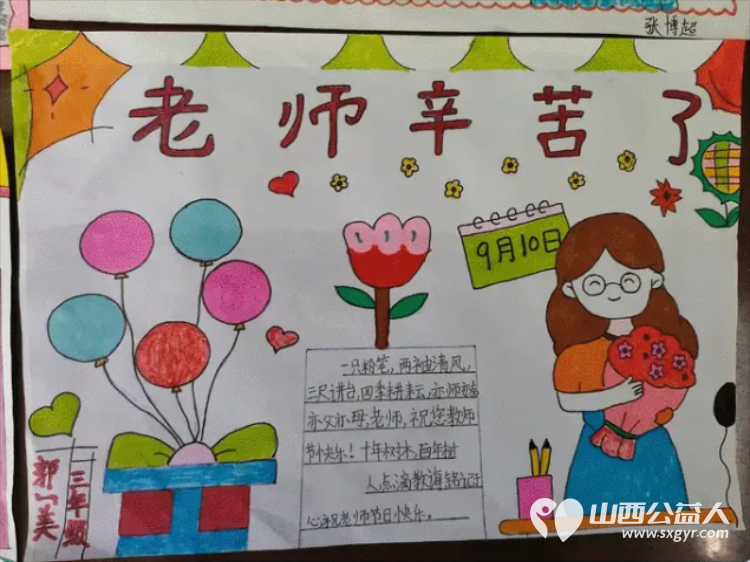 张博超
老师辛苦了
9月10日
一只粉笔,两袖清风,
三尺讲台,四季耕耘,亦师
亦父亦母,老师,祝您教师
节快乐!十年树木,百年树
人点滴教诲铭记于
心,祝老师节日快乐。
三年级
郭一美
山西公益人
www.sxgyr.com